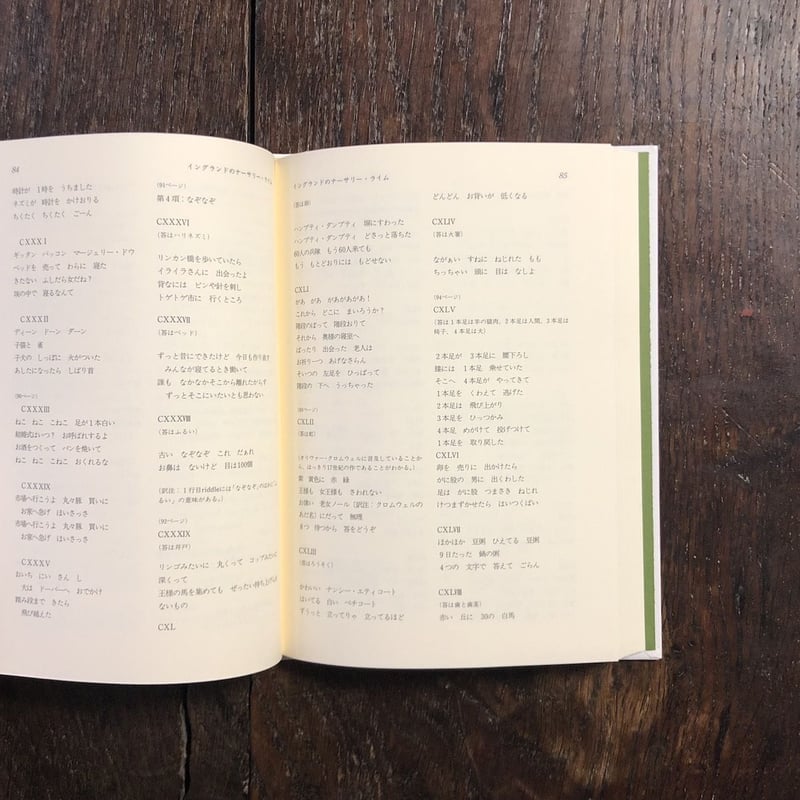 84
イングランドのナーサリー・ライム
時計が　1時を　うちました
ネズミが　時計を　かけおりる
ちくたく　ちくたく　ごーん
CXXXI
ギッタン　バッコン　マージェリー・ドウ
ベッドを　売って　わらに　寝た
きたない　ふしだら女だね？
埃の中で　寝るなんて
CXXXII
ディーン　ドーン　ダーン
子猫と　雀
子犬の　しっぽに　火がついた
あしたになったら　しばり首
(90ページ)
CXXXIII
ねこ　ねこ　こねこ　足が1本白い
結婚式はいつ？　お呼ばれするよ
お酒をつくって　パンを焼いて
ねこ　ねこ　こねこ　おくれるな
CXXXIX
市場へ行こうよ　丸々豚　買いに
お家へ急げ　はいさっさ
市場へ行こうよ　丸々豚　買いに
お家へ急げ　はいさっさ
CXXXV
おいち　にい　さん　し
犬は　ドーバーへ　おでかけ
踏み段まで　きたら
飛び越えた
(94ページ)
第4項：なぞなぞ
CXXXVI
(答はハリネズミ)
リンカン橋を歩いていたら
イライラさんに　出会ったよ
背なには　ピンや針を刺し
トゲトゲ市に　行くところ
CXXXVII
(答はベッド)
ずっと昔にできたけど　今日も作り直す
みんなが寝てるとき働いて
誰も　なかなかそこから離れたがらず
ずっとそこにいたいとも思わない
CXXXVIII
(答はふるい)
古い　なぞなぞ　これ　だぁれ
お鼻は　ないけど　目は100個
(訳注：1行目riddleには「なぞなぞ」のほかに「ふ
るい」の意味がある。)
(92ページ)
CXXXIX
(答は井戸)
リンゴみたいに　丸くって　コップみたいに
深くって
王様の馬を集めても　ぜったい持ち上げられ
ないもの
CXL
イングランドのナーサリー・ライム
85
(答は卵)
ハンプティ・ダンプティ　塀にすわった
ハンプティ・ダンプティ　どさっと落ちた
60人の兵隊　もう60人来ても
もう　もとどおりには　もどせない
CXLI
があ　があ　があがあがあ！
これから　どこに　まいろうか？
階段のぼって　階段おりて
それから　奥様の寝室へ
ばったり　出会った　老人は
お祈り一つ　あげなさらん
そいつの　左足を　ひっぱって
階段の　下へ　うっちゃった
CXLII
(答は虹)
(オリヴァー・クロムウェルに言及していることか
ら、はっきり17世紀の作であることがわかる。)
紫　黄色に　赤　緑
王様も　女王様も　さわれない
お強い　老女ノール（訳注：クロムウェルの
あだ名）にだって　無理
6つ　待つから　答をどうぞ
CXLIII
(答はろうそく)
かわいい　ナンシー・エティコート
はいてる　白い　ペチコート
ずうっと　立ってりゃ　立ってるほど
どんどん　お背いが　低くなる
CXLIV
(答は火箸)
ながぁい　すねに　ねじれた　もも
ちっちゃい　頭に　目は　なしよ
(94ページ)
CXLV
(答は1本足は羊の腿肉、2本足は人間、3本足は
椅子、4本足は犬)
2本足が　3本足に　腰下ろし
膝には　1本足　乗せていた
そこへ　4本足が　やってきて
1本足を　くわえて　逃げた
2本足は　飛び上がり
3本足を　ひっつかみ
4本足　めがけて　投げつけて
1本足を　取り戻した
CXLVI
卵を　売りに　出かけたら
がに股の　男に　出くわした
足は　がに股　つまさき　ねじれ
けつまずかせたら　はいつくばい
CXLVII
ほかほか　豆粥　ひえてる　豆粥
9日たった　鍋の粥
4つの　文字で　答えて　ごらん
CXLVIII
(答は歯と歯茎)
赤い　丘に　30の　白馬